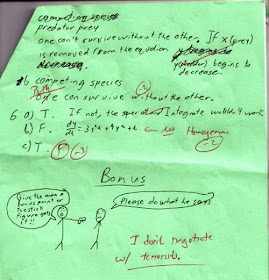 competing species
predator prey
one can't survive without the other. If x (prey)
is removed from the equation begins to
decrease.
b competing species
One can survive without the other. -2
6 a) T. If not, the
and Integrate wouldn't work
b) F. dy/dt = 3y²t + 9y²t + 6 not Homogenous
c) T. -3 -2
Bonus
Give the man a
bonus point or
the stick
figure gets
it!!
Please do what he says
I don't negotiate
w/ terrorists.